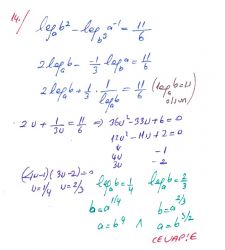 14./
log_a b² - log_{b³} a⁻¹ = 11/6
2log_a b - -1/3 log_b a = 11/6
2log_a b + 1/3 · 1/log_a b = 11/6 (log_a b = u olsun)
2u + 1/3u = 11/6 ⇒ 36u² - 33u + 6 = 0
12u² - 11u + 2 = 0
4u -1
3u -2
(4u-1)(3u-2) = 0
u = 1/4 u = 2/3
log_a b = 1/4 log_a b = 2/3
b = a^{1/4} b = a^{2/3}
a = b⁴ ∧ a = b^{3/2}
CEVAP: E